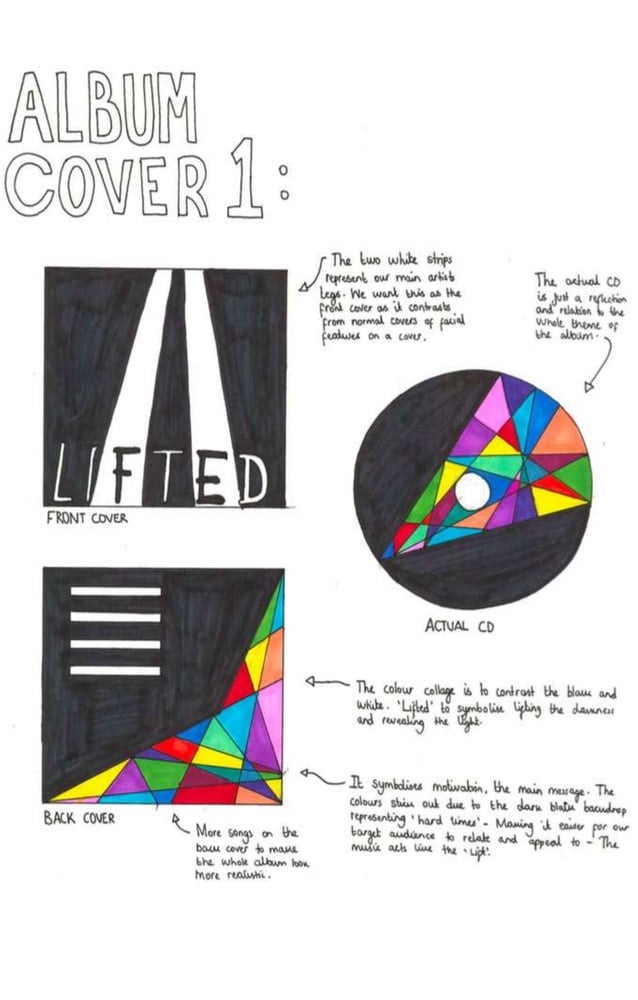 ALBUM
COVER 1:
The two white strips
represent our main artist
legs. We want this as the
front cover as it contrasts
from normal covers of facial
features on a cover.
The actual CD
is just a reflection
and relation to the
whole theme of
the album.
LIFTED
FRONT COVER
ACTUAL CD
The colour collage is to contrast the black and
white. 'Lifted' to symbolise lifting the darkness
and revealing the light.
It symbolises motivation, the main message. The
colours stick out due to the dark black backdrop
representing 'hard times' - Making it easier for our
target audience to relate and appeal to - The
music acts like the 'Lift'.
BACK COVER
More songs on the
back cover to make
the whole album look
more realistic.